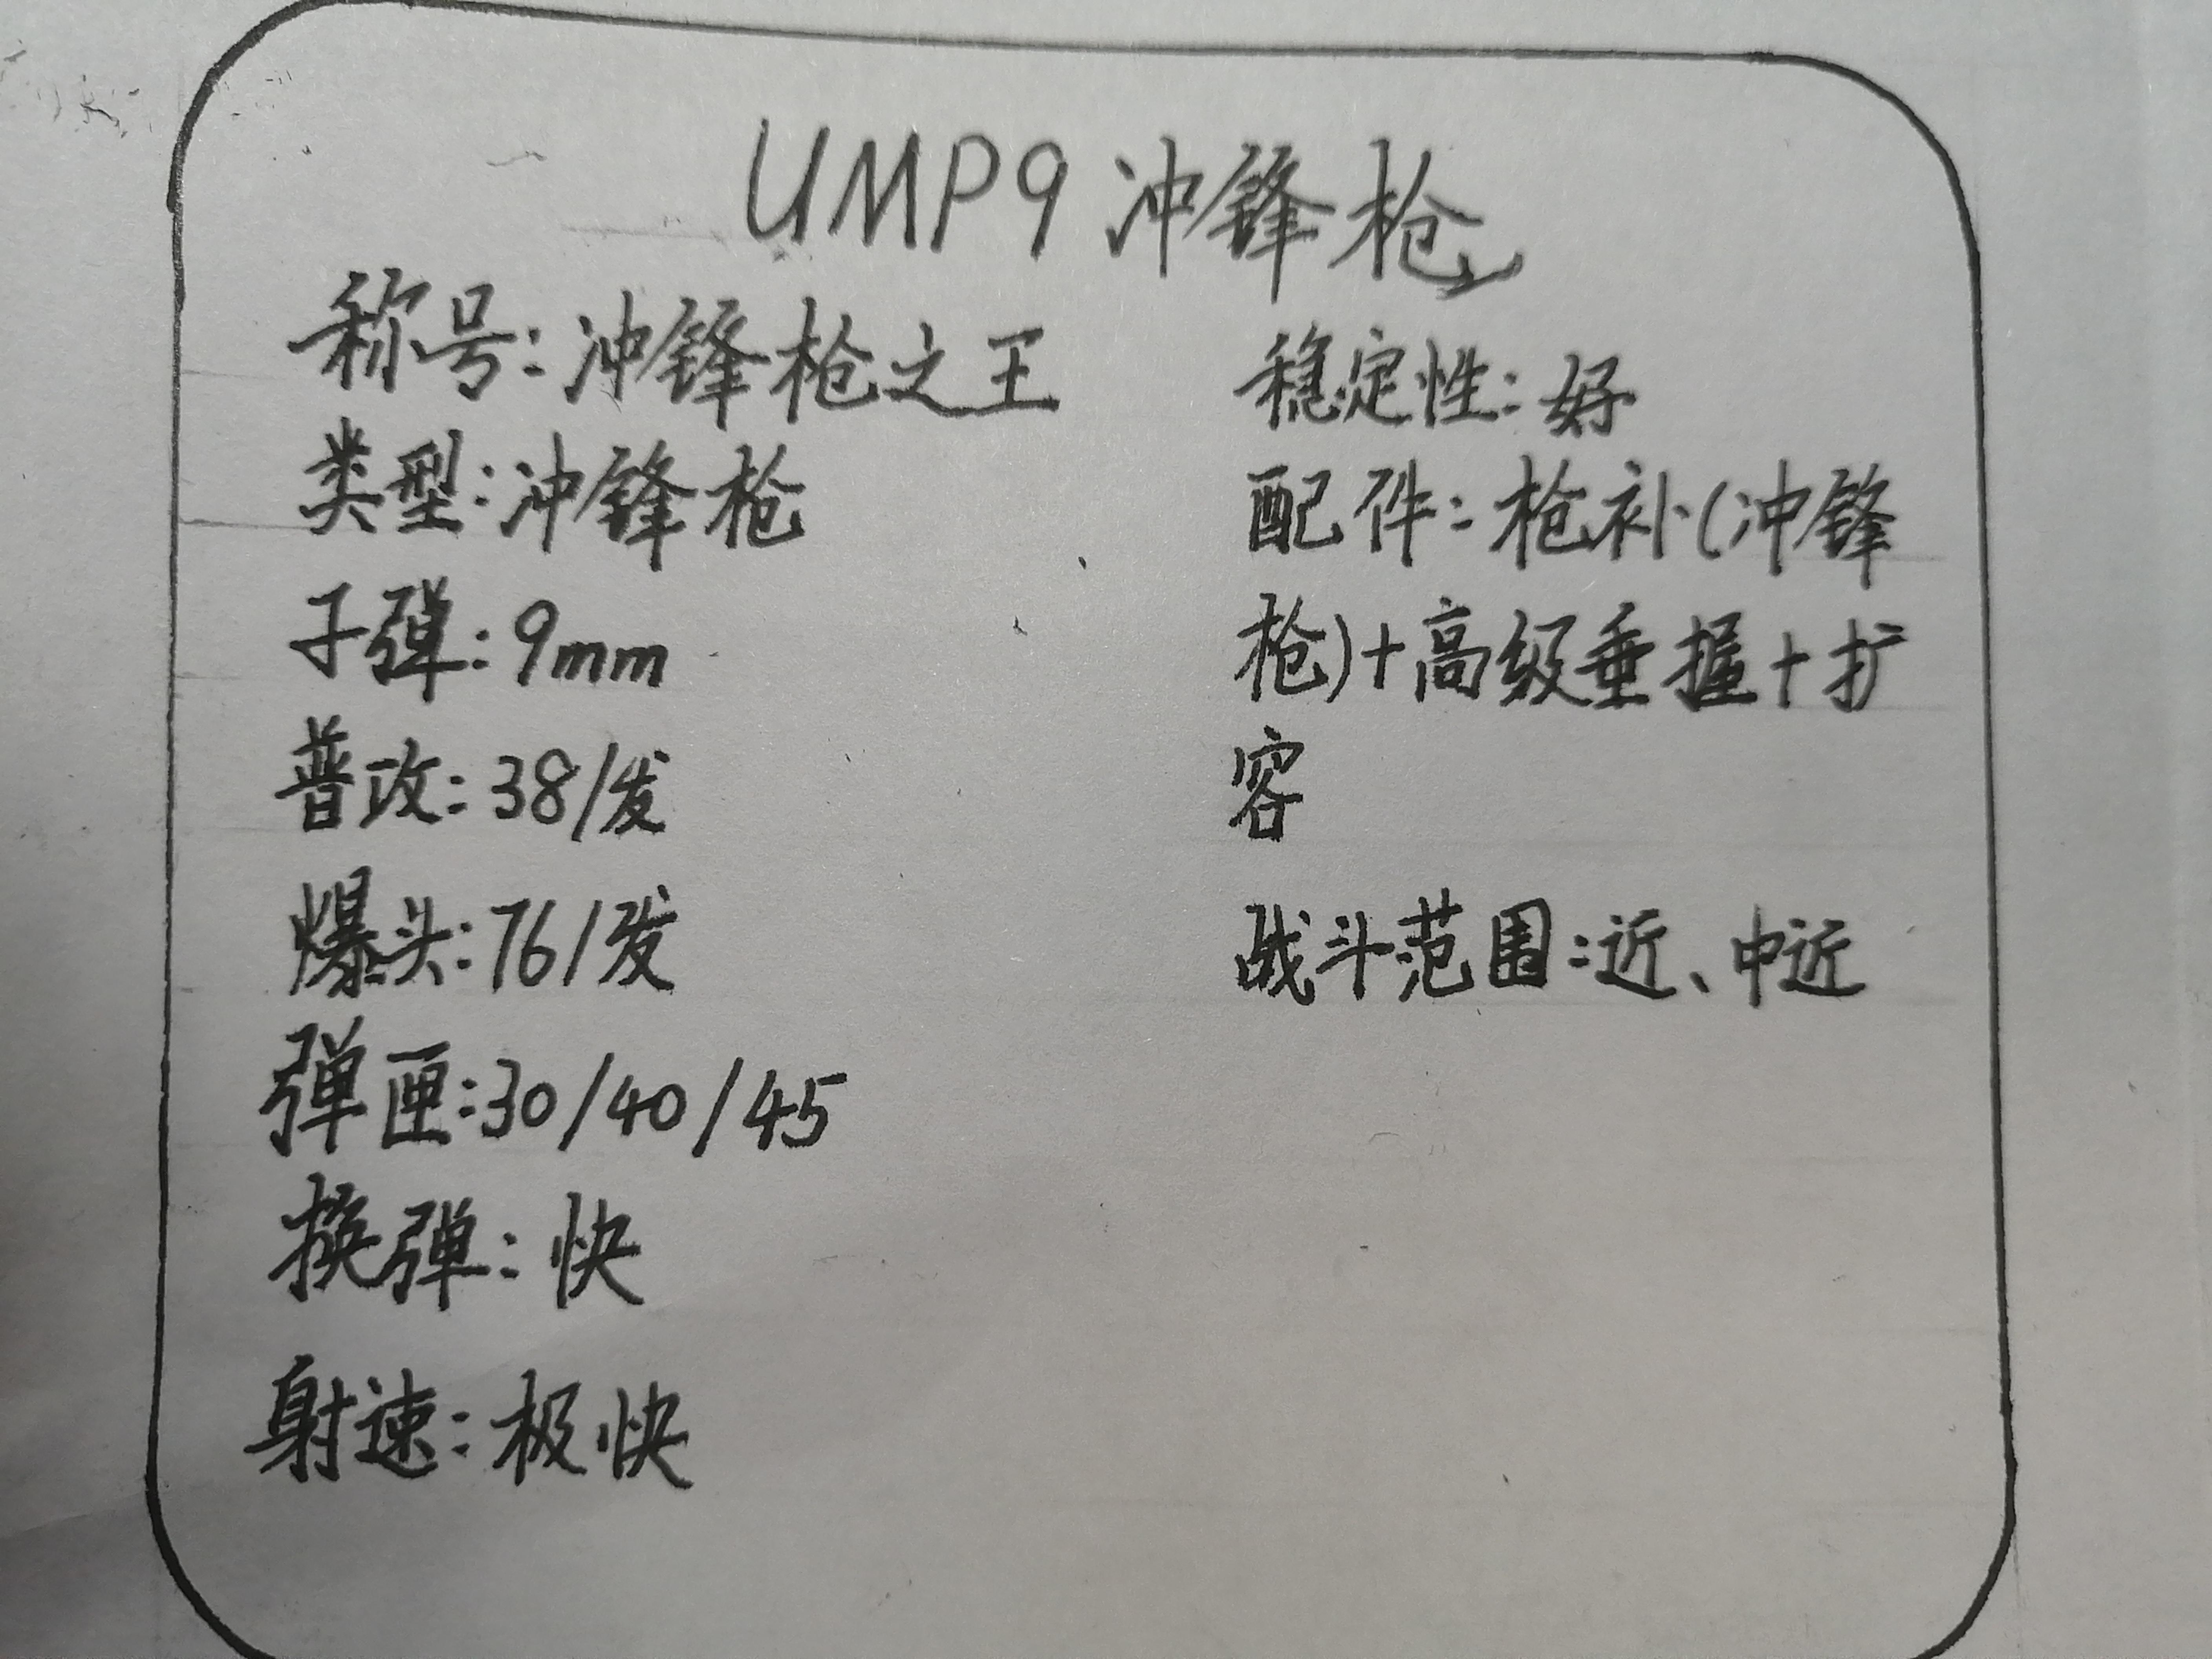 UMP9冲锋枪
称号：冲锋枪之王
类型：冲锋枪
子弹：9mm
普攻：38/发
爆头：76/发
弹匣：30/40/45
换弹：快
射速：极快
稳定性：好
配件：枪补(冲锋
枪)+高级垂握+扩
容
战斗范围：近、中近